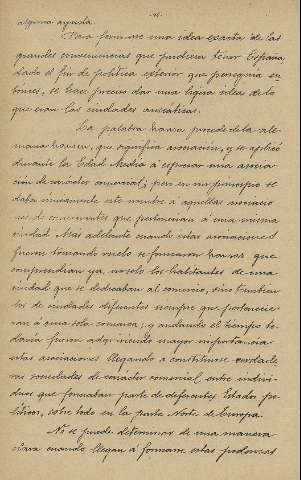 alguna ayuda.
Para formarse una idea exacta de las
grandes consecuencias que pudiera tener España,
dado el fin de política exterior que perseguía en-
tonces, se hace preciso dar una ligera idea de lo
que eran las ciudades anseáticas.
La palabra hansa procede de la ale-
mana hansen, que significa asociación, y se aplicó
durante la Edad Media á expresar una asocia-
ción de carácter comercial; pero en un principio se
daba únicamente este nombre á aquellas asociacio-
nes de comerciantes que pertenecían á una misma
ciudad. Más adelante cuando estas asociaciones
fueron tomando vuelo se formaron hansas que
comprendían ya, no solo los habitantes de una
ciudad que se dedicaban al comercio, sino también
los de ciudades diferentes siempre que pertenecie-
ran á una sola comarca, y andando el tiempo to-
davía fueron adquiriendo mayor importancia
estas asociaciones llegando á constituirse verdade-
ras sociedades de carácter comercial, entre indivi-
duos que formaban parte de diferentes Estados po-
líticos, sobre todo en la parte Norte de Europa.
No se puede determinar de una manera
clara cuando llegan á formarse estas poderosas